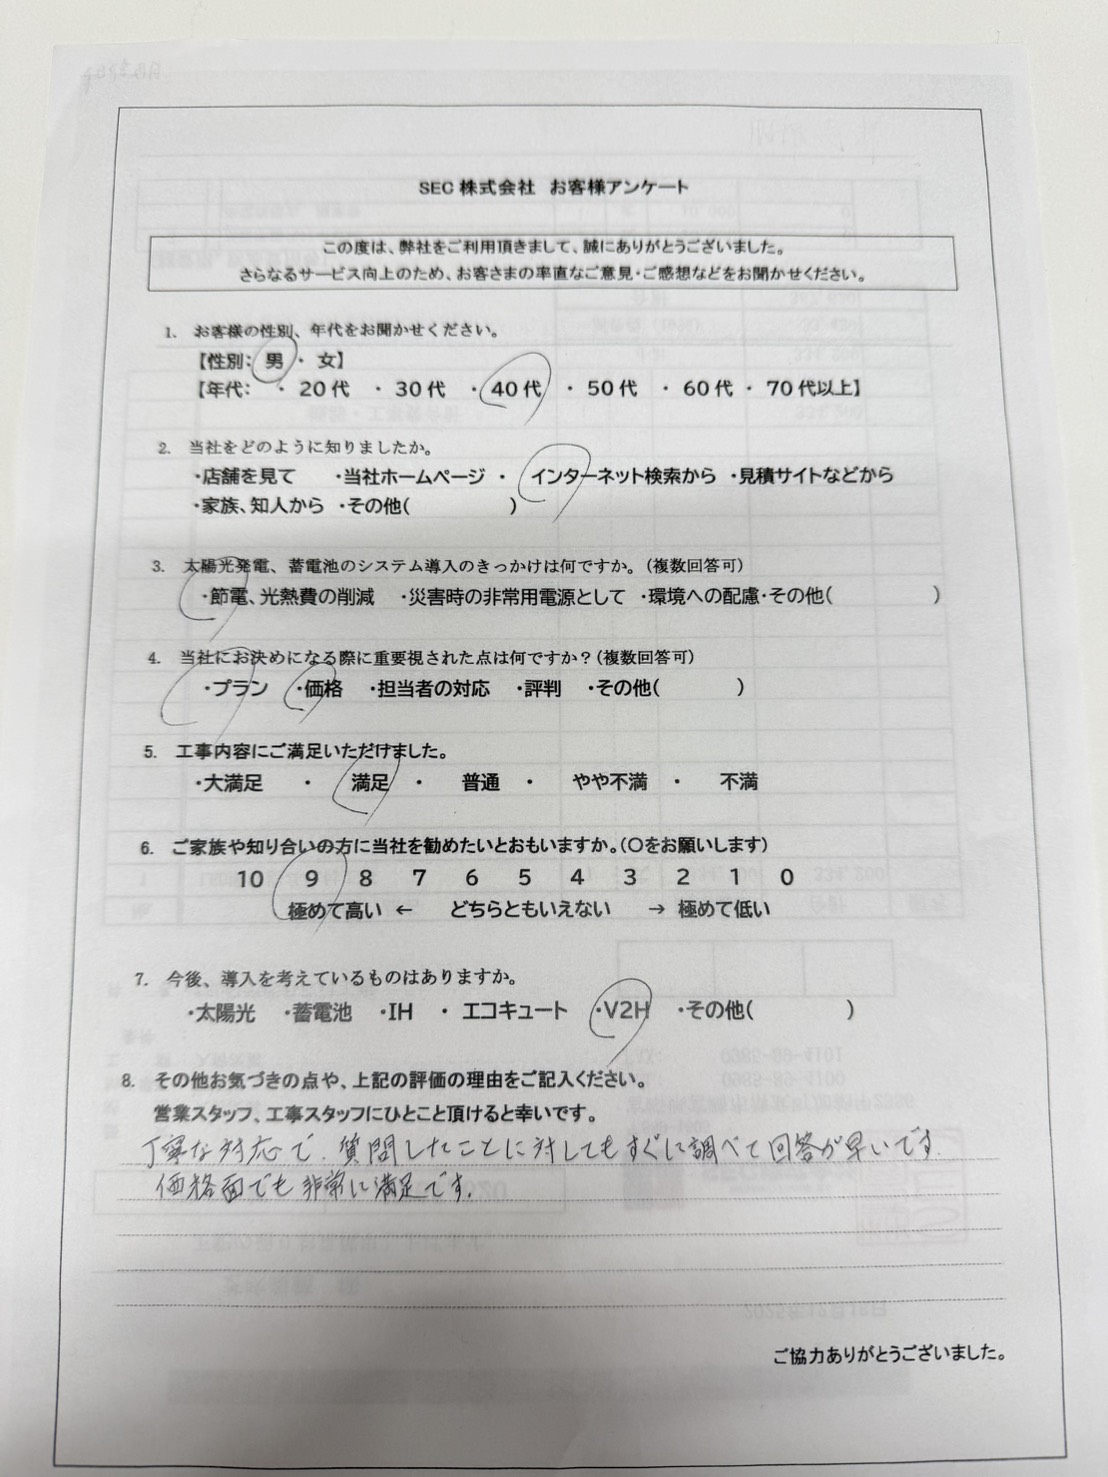 SEC 株式会社　お客様アンケート
この度は、弊社をご利用頂きまして、誠にありがとうございました。
さらなるサービス向上のため、お客さまの率直なご意見・ご感想などをお聞かせください。
1.　お客様の性別、年代をお聞かせください。
【性別：　男　・　女】
【年代：　・ 20 代　・ 30 代　・ 40 代　・ 50 代　・ 60 代 ・ 70 代以上】
2.　当社をどのように知りましたか。
・店舗を見て　・当社ホームページ　・　インターネット検索から　・見積サイトなどから
・家族、知人から　・その他(　　　　)
3.　太陽光発電、蓄電池のシステム導入のきっかけは何ですか。（複数回答可）
・節電、光熱費の削減　・災害時の非常用電源として　・環境への配慮・その他(　　　　)
4.　当社にお決めになる際に重要視された点は何ですか？（複数回答可）
・プラン　・価格　・担当者の対応　・評判　・その他(　　　　)
5.　工事内容にご満足いただけました。
・大満足　・　満足　・　普通　・　やや不満　・　不満
6.　ご家族や知り合いの方に当社を勧めたいとおもいますか。（〇をお願いします）
10　9　8　7　6　5　4　3　2　1　0
極めて高い　←　どちらともいえない　→　極めて低い
7.　今後、導入を考えているものはありますか。
・太陽光　・蓄電池　・IH　・ エコキュート　・V2H　・その他(　　　　)
8.　その他お気づきの点や、上記の評価の理由をご記入ください。
営業スタッフ、工事スタッフにひとこと頂けると幸いです。
丁寧な対応で、質問したことに対してもすぐに調べて回答が早いです。
価格面でも非常に満足です。
ご協力ありがとうございました。